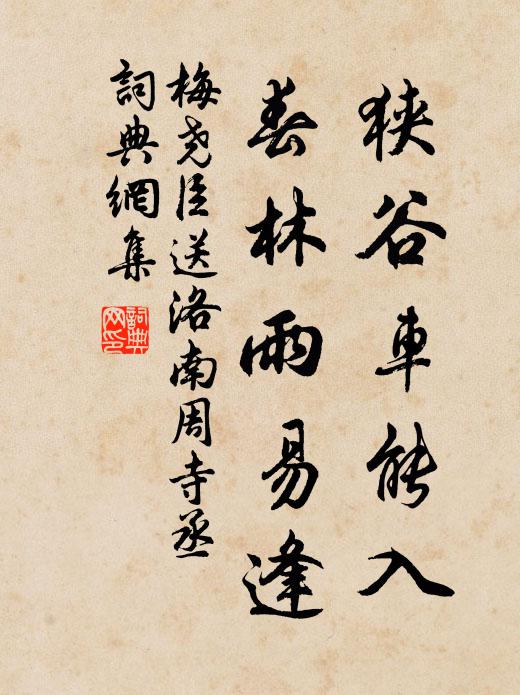 狹谷車能入
春林雨易逢
梅尧臣送洛南周寺丞
詞典網集
詞典网印